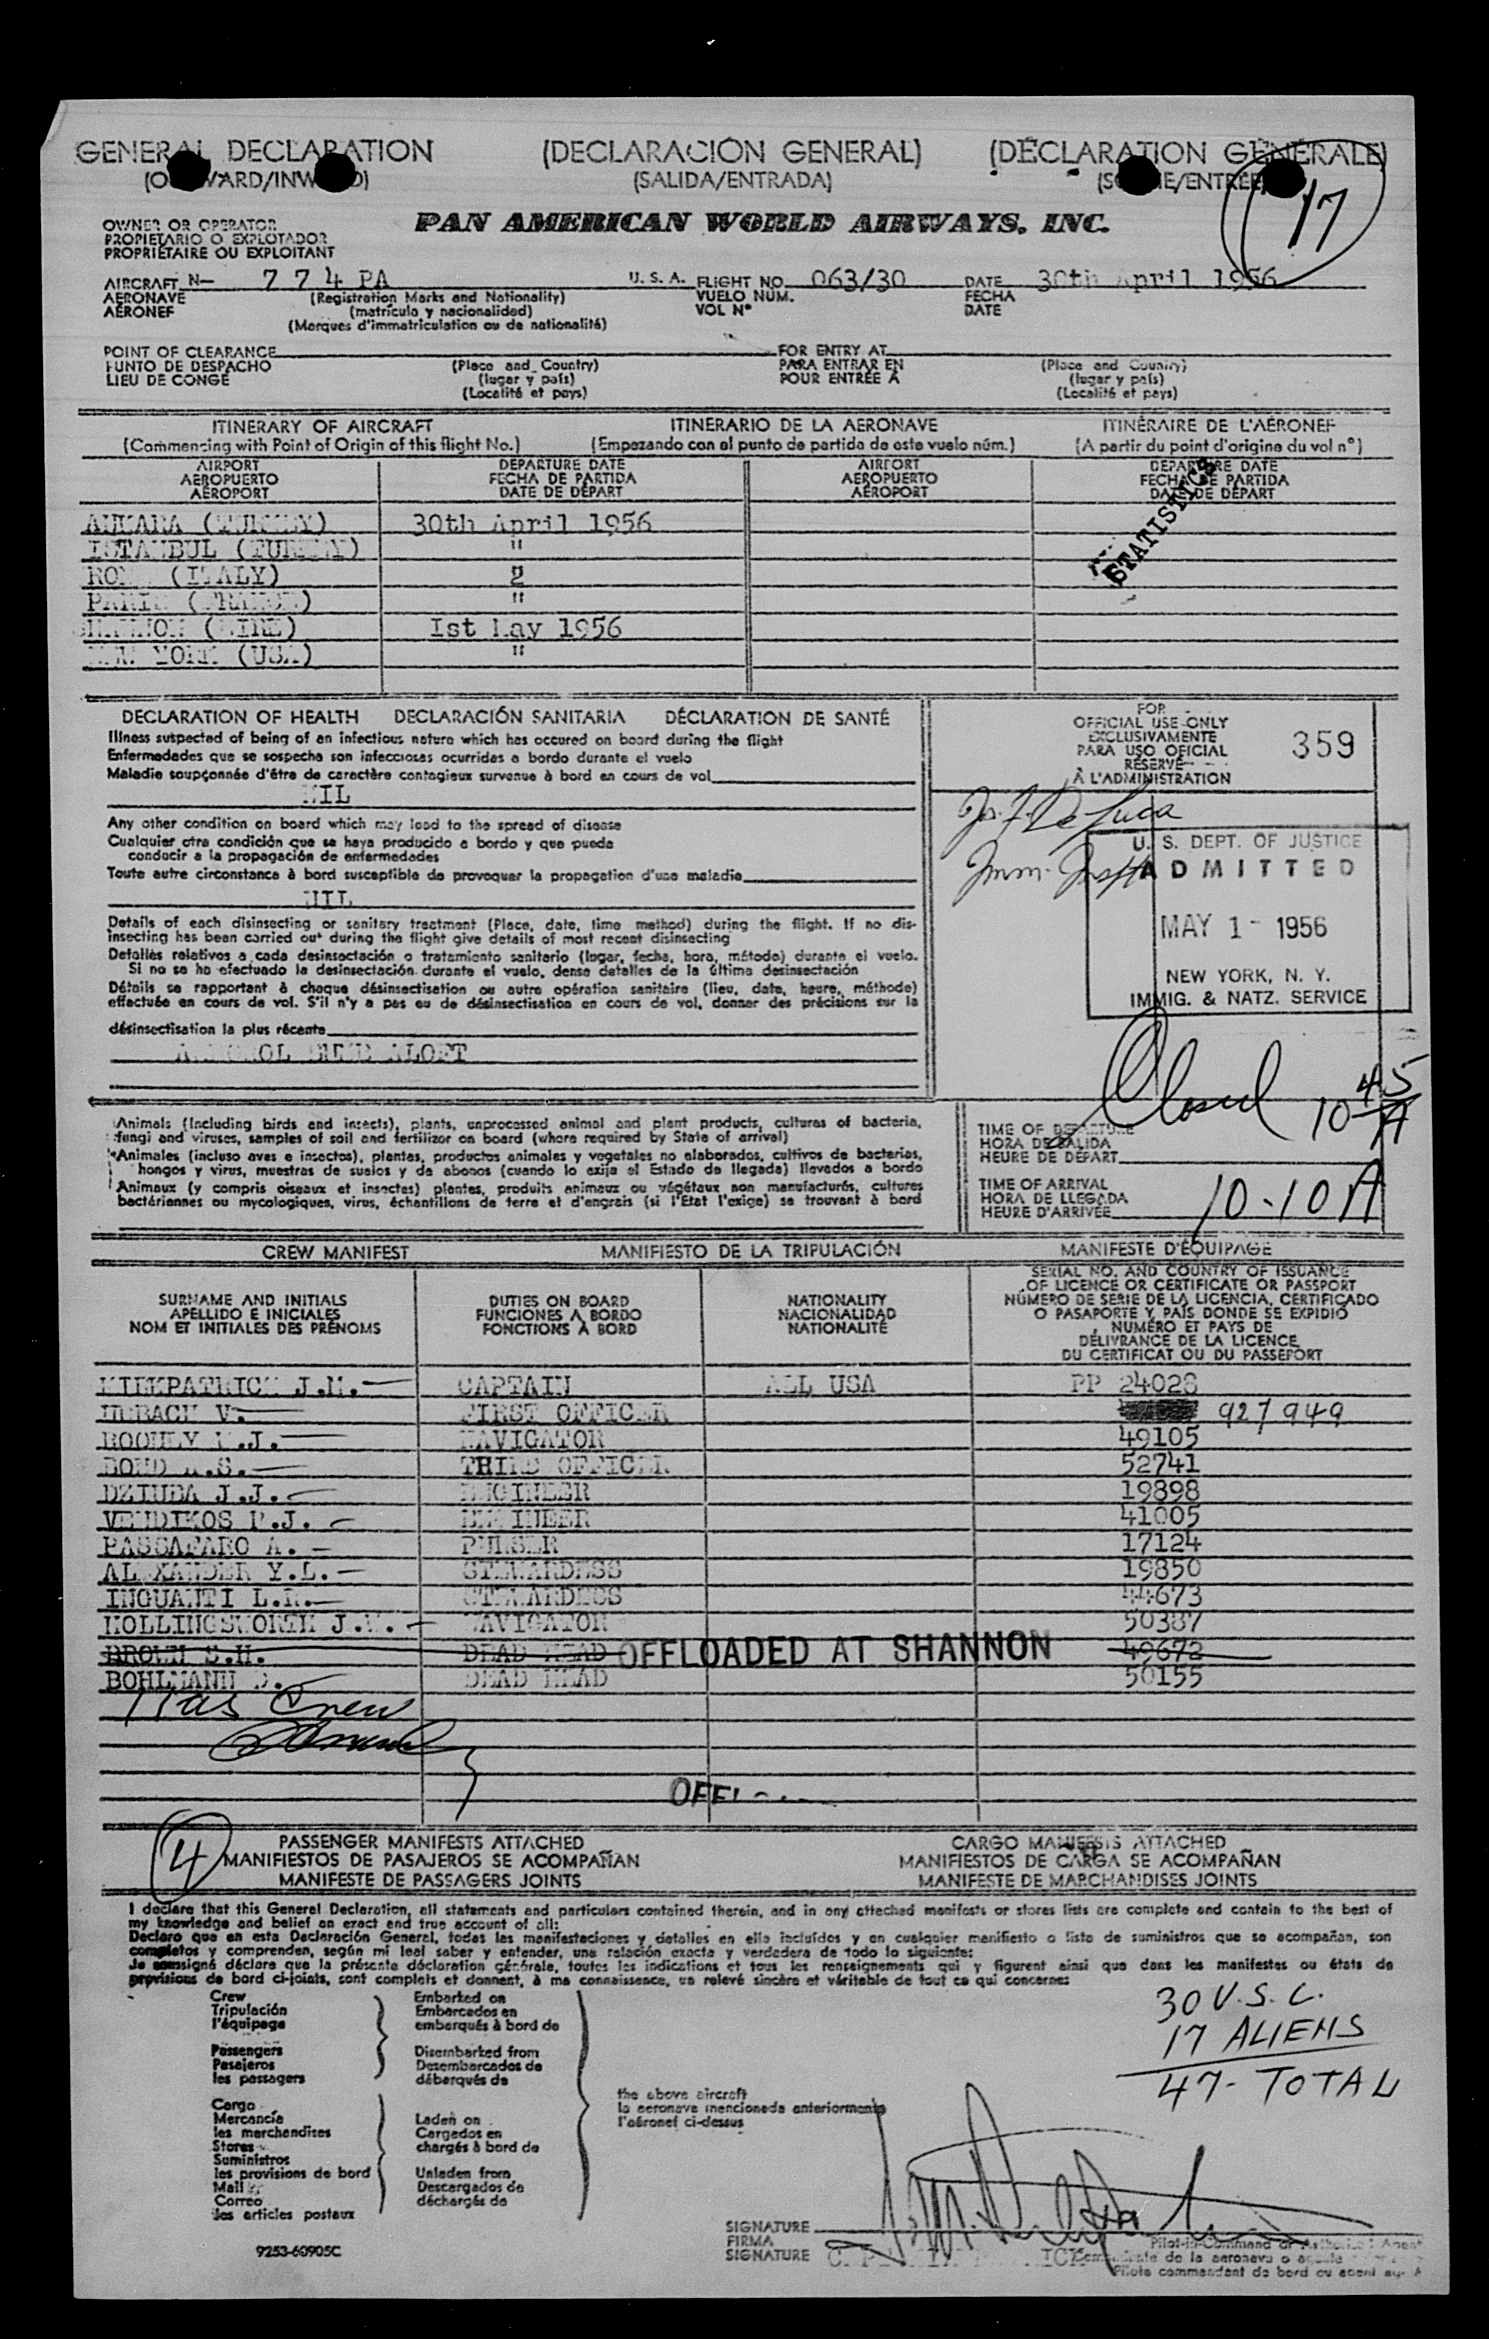 GENERAL DECLARATION (DECLARACIÓN GENERAL) (DÉCLARATION GÉNÉRALE)
(OUTWARD/INWARD) (SALIDA/ENTRADA) (SORTIE/ENTRÉE)
17
OWNER OR OPERATOR
PROPIETARIO O EXPLOTADOR
PROPRIÉTAIRE OU EXPLOITANT
PAN AMERICAN WORLD AIRWAYS, INC.
AIRCRAFT N- 774PA U. S. A. FLIGHT NO. 063/30 DATE 30th April 1956
AERONAVE (Registration Marks and Nationality) VUELO NÚM. FECHA
AÉRONEF (matrícula y nacionalidad) VOL Nº DATE
(Marques d'immatriculation ou de nationalité)
POINT OF CLEARANCE FOR ENTRY AT
PUNTO DE DESPACHO (Place and Country) PARA ENTRAR EN (Place and Country)
LIEU DE CONGÉ (lugar y país) POUR ENTRÉE À (lugar y país)
(Localité et pays) (Localité et pays)
ITINERARY OF AIRCRAFT ITINERARIO DE LA AERONAVE ITINÉRAIRE DE L'AÉRONEF
(Commencing with Point of Origin of this flight No.) (Empezando con el punto de partida de este vuelo núm.) (A partir du point d'origine du vol nº)
AIRPORT DEPARTURE DATE AIRPORT DEPARTURE DATE
AEROPUERTO FECHA DE PARTIDA AEROPUERTO FECHA DE PARTIDA
AÉROPORT DATE DE DÉPART AÉROPORT DATE DE DÉPART
STATISTICS
ANKARA (TURKEY) 30th April 1956
ISTANBUL (TURKEY) "
ROME (ITALY) "
PARIS (FRANCE) "
SHANNON (EIRE) Ist May 1956
NEW YORK (USA) "
DECLARATION OF HEALTH DECLARACIÓN SANITARIA DÉCLARATION DE SANTÉ
Illness suspected of being of an infectious nature which has occured on board during the flight
Enfermedades que se sospecha son infecciosas ocurridas a bordo durante el vuelo
Maladie soupçonnée d'être de caractère contagieux survenue à bord en cours de vol
NIL
Any other condition on board which may lead to the spread of disease
Cualquier otra condición que se haya producido a bordo y que pueda
conducir a la propagación de enfermedades
Toute autre circonstance à bord susceptible de provoquer la propagation d'une maladie
NIL
Details of each disinsecting or sanitary treatment (Place, date, time method) during the flight. If no dis-
insecting has been carried out during the flight give details of most recent disinsecting
Detalles relativos a cada desinsectación o tratamiento sanitario (lugar, fecha, hora, método) durante el vuelo.
Si no se ha efectuado la desinsectación durante el vuelo, dense detalles de la última desinsectación
Détails se rapportant à chaque désinsectisation ou autre opération sanitaire (lieu, date, heure, méthode)
effectuée en cours de vol. S'il n'y a pas eu de désinsectisation en cours de vol, donner des précisions sur la
désinsectisation la plus récente
ALOFT
FOR
OFFICIAL USE ONLY
EXCLUSIVAMENTE
PARA USO OFICIAL
RÉSERVÉ
À L'ADMINISTRATION
359
Jos. F. De Luca
Imm. Insp
U. S. DEPT. OF JUSTICE
ADMITTED
MAY 1 - 1956
NEW YORK, N. Y.
IMMIG. & NATZ. SERVICE
Closed 10 45 A
Animals (Including birds and insects), plants, unprocessed animal and plant products, cultures of bacteria,
fungi and viruses, samples of soil and fertilizer on board (where required by State of arrival)
Animales (incluso aves e insectos), plantas, productos animales y vegetales no elaborados, cultivos de bacterias,
hongos y virus, muestras de suelos y de abonos (cuando lo exija el Estado de llegada) llevados a bordo
Animaux (y compris oiseaux et insectes) plantes, produits animaux ou végétaux non manufacturés, cultures
bactériennes ou mycologiques, virus, échantillons de terre et d'engrais (si l'État l'exige) se trouvant à bord
TIME OF DEPARTURE
HORA DE SALIDA
HEURE DE DÉPART
TIME OF ARRIVAL
HORA DE LLEGADA
HEURE D'ARRIVÉE
10-10 A
CREW MANIFEST MANIFIESTO DE LA TRIPULACIÓN MANIFESTE D'ÉQUIPAGE
SURNAME AND INITIALS
APELLIDO E INICIALES
NOM ET INITIALES DES PRÉNOMS
DUTIES ON BOARD
FUNCIONES A BORDO
FONCTIONS À BORD
NATIONALITY
NACIONALIDAD
NATIONALITÉ
SERIAL NO. AND COUNTRY OF ISSUANCE
OF LICENCE OR CERTIFICATE OR PASSPORT
NÚMERO DE SERIE DE LA LICENCIA, CERTIFICADO
O PASAPORTE Y PAÍS DONDE SE EXPIDIÓ
NUMÉRO ET PAYS DE
DÉLIVRANCE DE LA LICENCE
DU CERTIFICAT OU DU PASSEPORT
KIRKPATRICK J.M. CAPTAIN ALL USA PP 24028
V. FIRST OFFICER 927949
NAVIGATOR 49105
BOND THIRD OFFICER 52741
DZIUBA J.J. ENGINEER 19898
VENDIKOS P.J. ENGINEER 41005
PASSAFARO A. PURSER 17124
ALEXANDER Y.L. STEWARDESS 19850
INGUANTI L.R. STEWARDESS 44673
HOLLINGSWORTH NAVIGATOR 50387
BROWN S.H. DEAD HEAD OFFLOADED AT SHANNON 49672
BOHLMANN DEAD HEAD 50155
11 as Crew
OFFL
4
PASSENGER MANIFESTS ATTACHED CARGO MANIFESTS ATTACHED
MANIFIESTOS DE PASAJEROS SE ACOMPAÑAN MANIFIESTOS DE CARGA SE ACOMPAÑAN
MANIFESTE DE PASSAGERS JOINTS MANIFESTE DE MARCHANDISES JOINTS
I declare that this General Declaration, all statements and particulars contained therein, and in any attached manifests or stores lists are complete and contain to the best of
my knowledge and belief an exact and true account of all:
Declaro que en esta Declaración General, todas las manifestaciones y detalles en ella incluidos y en cualquier manifiesto o lista de suministros que se acompañan, son
completos y comprenden, según mi leal saber y entender, una relación exacta y verdadera de todo lo siguiente:
Je soussigné déclare que la présente déclaration générale, toutes les indications et tous les renseignements qui y figurent ainsi que dans les manifestes ou états de
provisions de bord ci-joints, sont complets et donnent, à ma connaissance, un relevé sincère et véritable de tout ce qui concerne:
Crew Embarked on
Tripulación Embarcados en
l'équipage embarqués à bord de
Passengers Disembarked from
Pasajeros Desembarcados de
les passagers débarqués de
the above aircraft
la aeronave mencionada anteriormente
l'aéronef ci-dessus
Cargo
Mercancía Laden on
les marchandises Cargados en
Stores chargés à bord de
Suministros
les provisions de bord Unladen from
Mail Descargados de
Correo déchargés de
les articles postaux
30 U.S.C.
17 ALIENS
47 - TOTAL
SIGNATURE
FIRMA
SIGNATURE
Pilot-in-Command or Authorized Agent
Comandante de la aeronave o
Pilote commandant de bord ou agent
9253-60905C